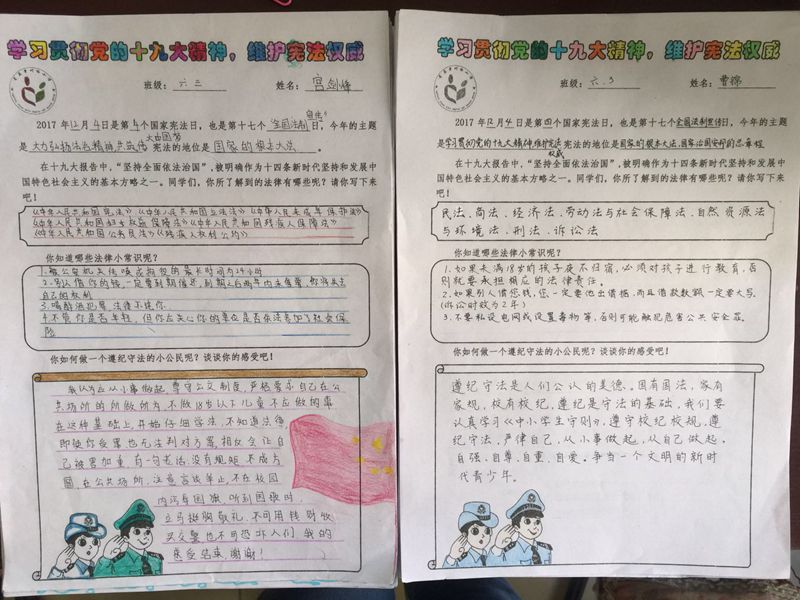 学习贯彻党的十九大精神，维护宪法权威
班级：六三
姓名：宫剑峰
2017 年12月4日是第4个国家宪法日，也是第十七个全国法制宣传日，今年的主题
是大力弘扬法治精神共筑伟大中国梦 宪法的地位是国家的根本大法。
在十九大报告中，“坚持全面依法治国”，被明确作为十四条新时代坚持和发展中
国特色社会主义的基本方略之一。同学们，你所了解到的法律有哪些呢？请你写下来
吧！
《中华人民共和国宪法》《中华人民共和国
《中华人民共和国妇女权益保障法》《中华人民共和国残疾人保障法》
《中华人民共和国公务员法》
你知道哪些法律小常识呢？
1.被公安机关传唤或拘役的最长时间为24小时
2.别人借你的钱，一定要到期催还，到期之后两年内未催要，你将失去
自己的权利
3.喝醉酒犯罪法律不
4.不管你是否年轻，但你应关心你的单位是否依法参加了社会保
险
你如何做一个遵纪守法的小公民呢？谈谈你的感受吧！
我认为应从小事做起，遵守公交制度，严格要求自己在公
共场所的所做所为，不做18岁以下儿童不应做的事
在这种基础上，开始仔细学法，不知道法律
即使你受罪也无法判对方罪，相反会让自
己被害加重，有一句老话，没有规矩不成方
圆，在公共场所，注意言谈举止，不在校园
内污辱国旗，听到国歌时
立马挺胸敬礼，不可用钱财收
买交警也不可恐吓人们，我的
感受结束，谢谢！
学习贯彻党的十九大精神，维护宪法权威
班级：六.3
姓名：曹
2017 年12月4日是第四个国家宪法日，也是第十七个全国法制宣传日，今年的主题
是学习贯彻党的十九大精神维护宪法权威 宪法的地位是国家的根本大法，国家治国安邦的总章程
在十九大报告中，“坚持全面依法治国”，被明确作为十四条新时代坚持和发展中
国特色社会主义的基本方略之一。同学们，你所了解到的法律有哪些呢？请你写下来
吧！
民法、商法、经济法、劳动法与社会保障法、自然资源法
与环境法、刑法、诉讼法
你知道哪些法律小常识呢？
1.如果未满18岁的孩子夜不归宿，必须对孩子进行教育，否
则就要承担相应的法律责任。
2.如果别人借您钱，您一定要他出借据，而且借款数额一定要大写。
(诉讼时效为2年)
3.不要私设电网或设置毒物等，否则可能触犯危害公共安全罪。
你如何做一个遵纪守法的小公民呢？谈谈你的感受吧！
遵纪守法是人们公认的美德。国有国法，家有
家规，校有校纪，遵纪是守法的基础，我们要
认真学习《中小学生守则》，遵守校纪校规，遵
纪守法，严律自己，从小事做起，从自己做起，
自强、自尊、自重、自爱。争当一个文明的新时
代青少年。